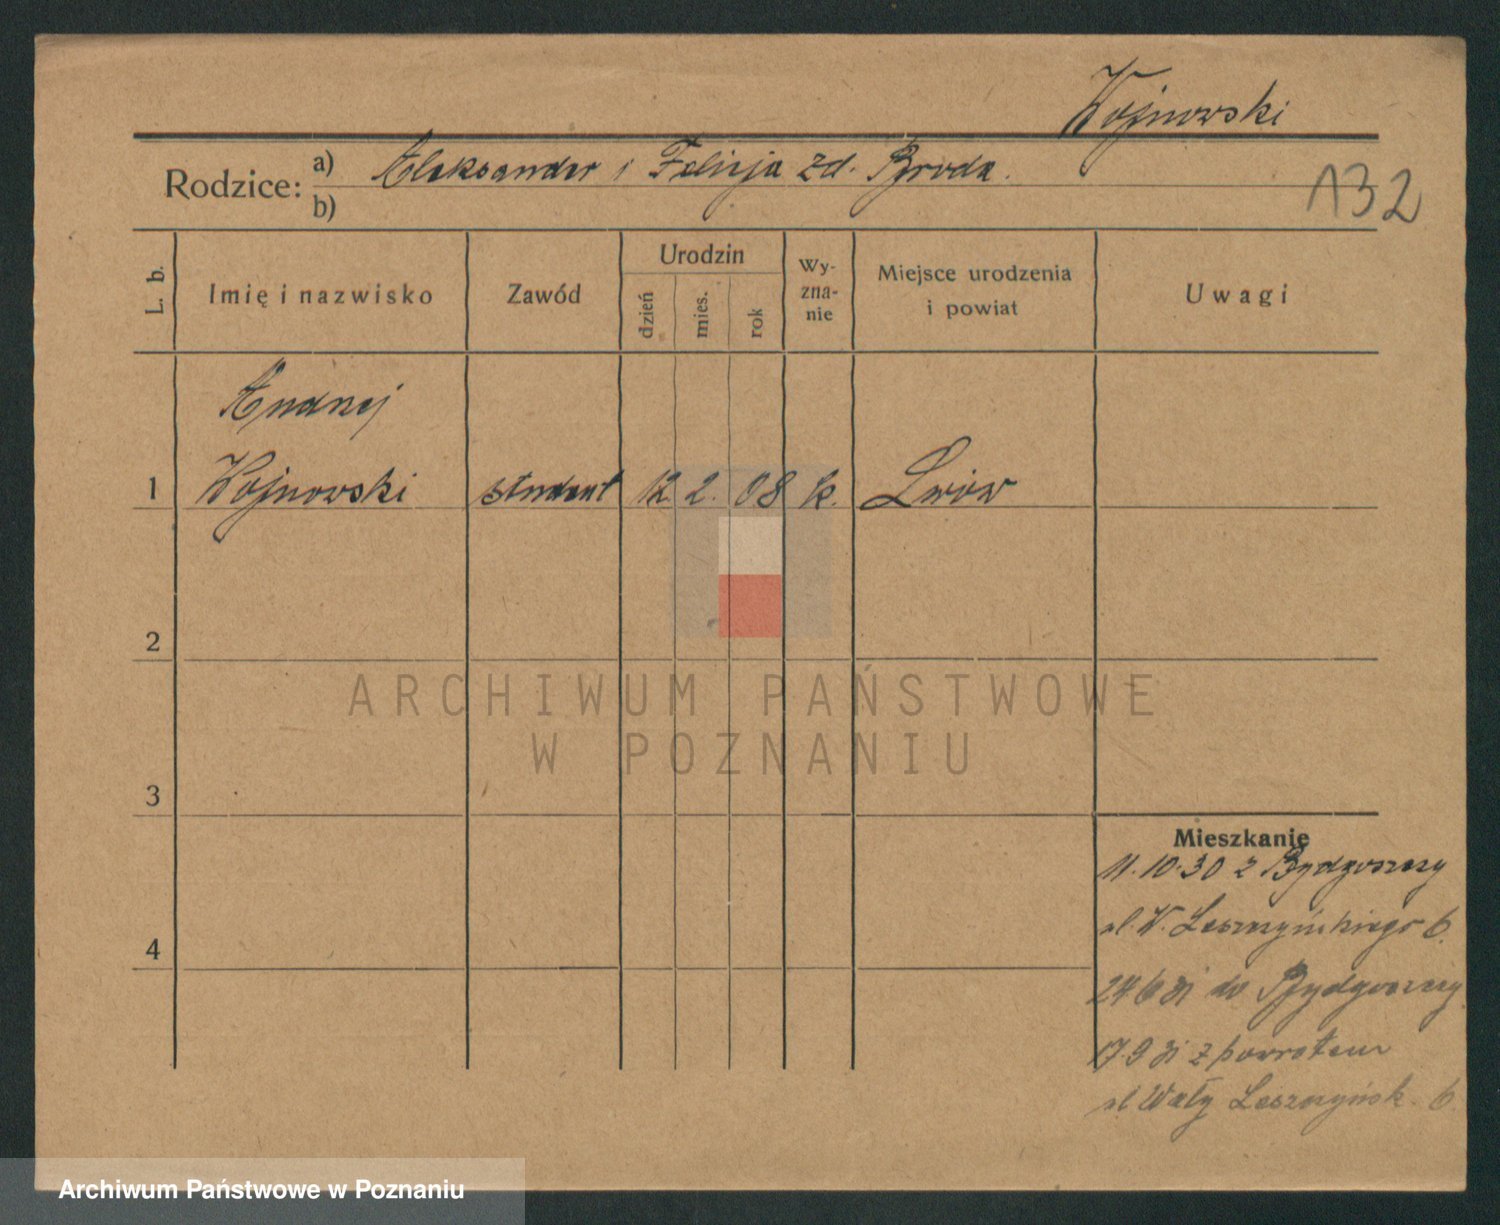 Wojnowski
Rodzice: a) Aleksander i Felicja zd. Broda.
b)
132
L. b.
Imię i nazwisko
Zawód
Urodzin
dzień
mies.
rok
Wy-
zna-
nie
Miejsce urodzenia
i powiat
Uwagi
Andrzej
1 Wojnowski student 12. 2. 08 k. Lwów
2
ARCHIWUM PAŃSTWOWE
W POZNANIU
3
Mieszkanie
11.10.30 z Bydgoszczy
ul. W. Leszczyńskiego 6.
4
24 6 31 do Bydgoszczy
17 9 31 z powrotem
ul Wały Leszczyńsk. 6
Archiwum Państwowe w Poznaniu